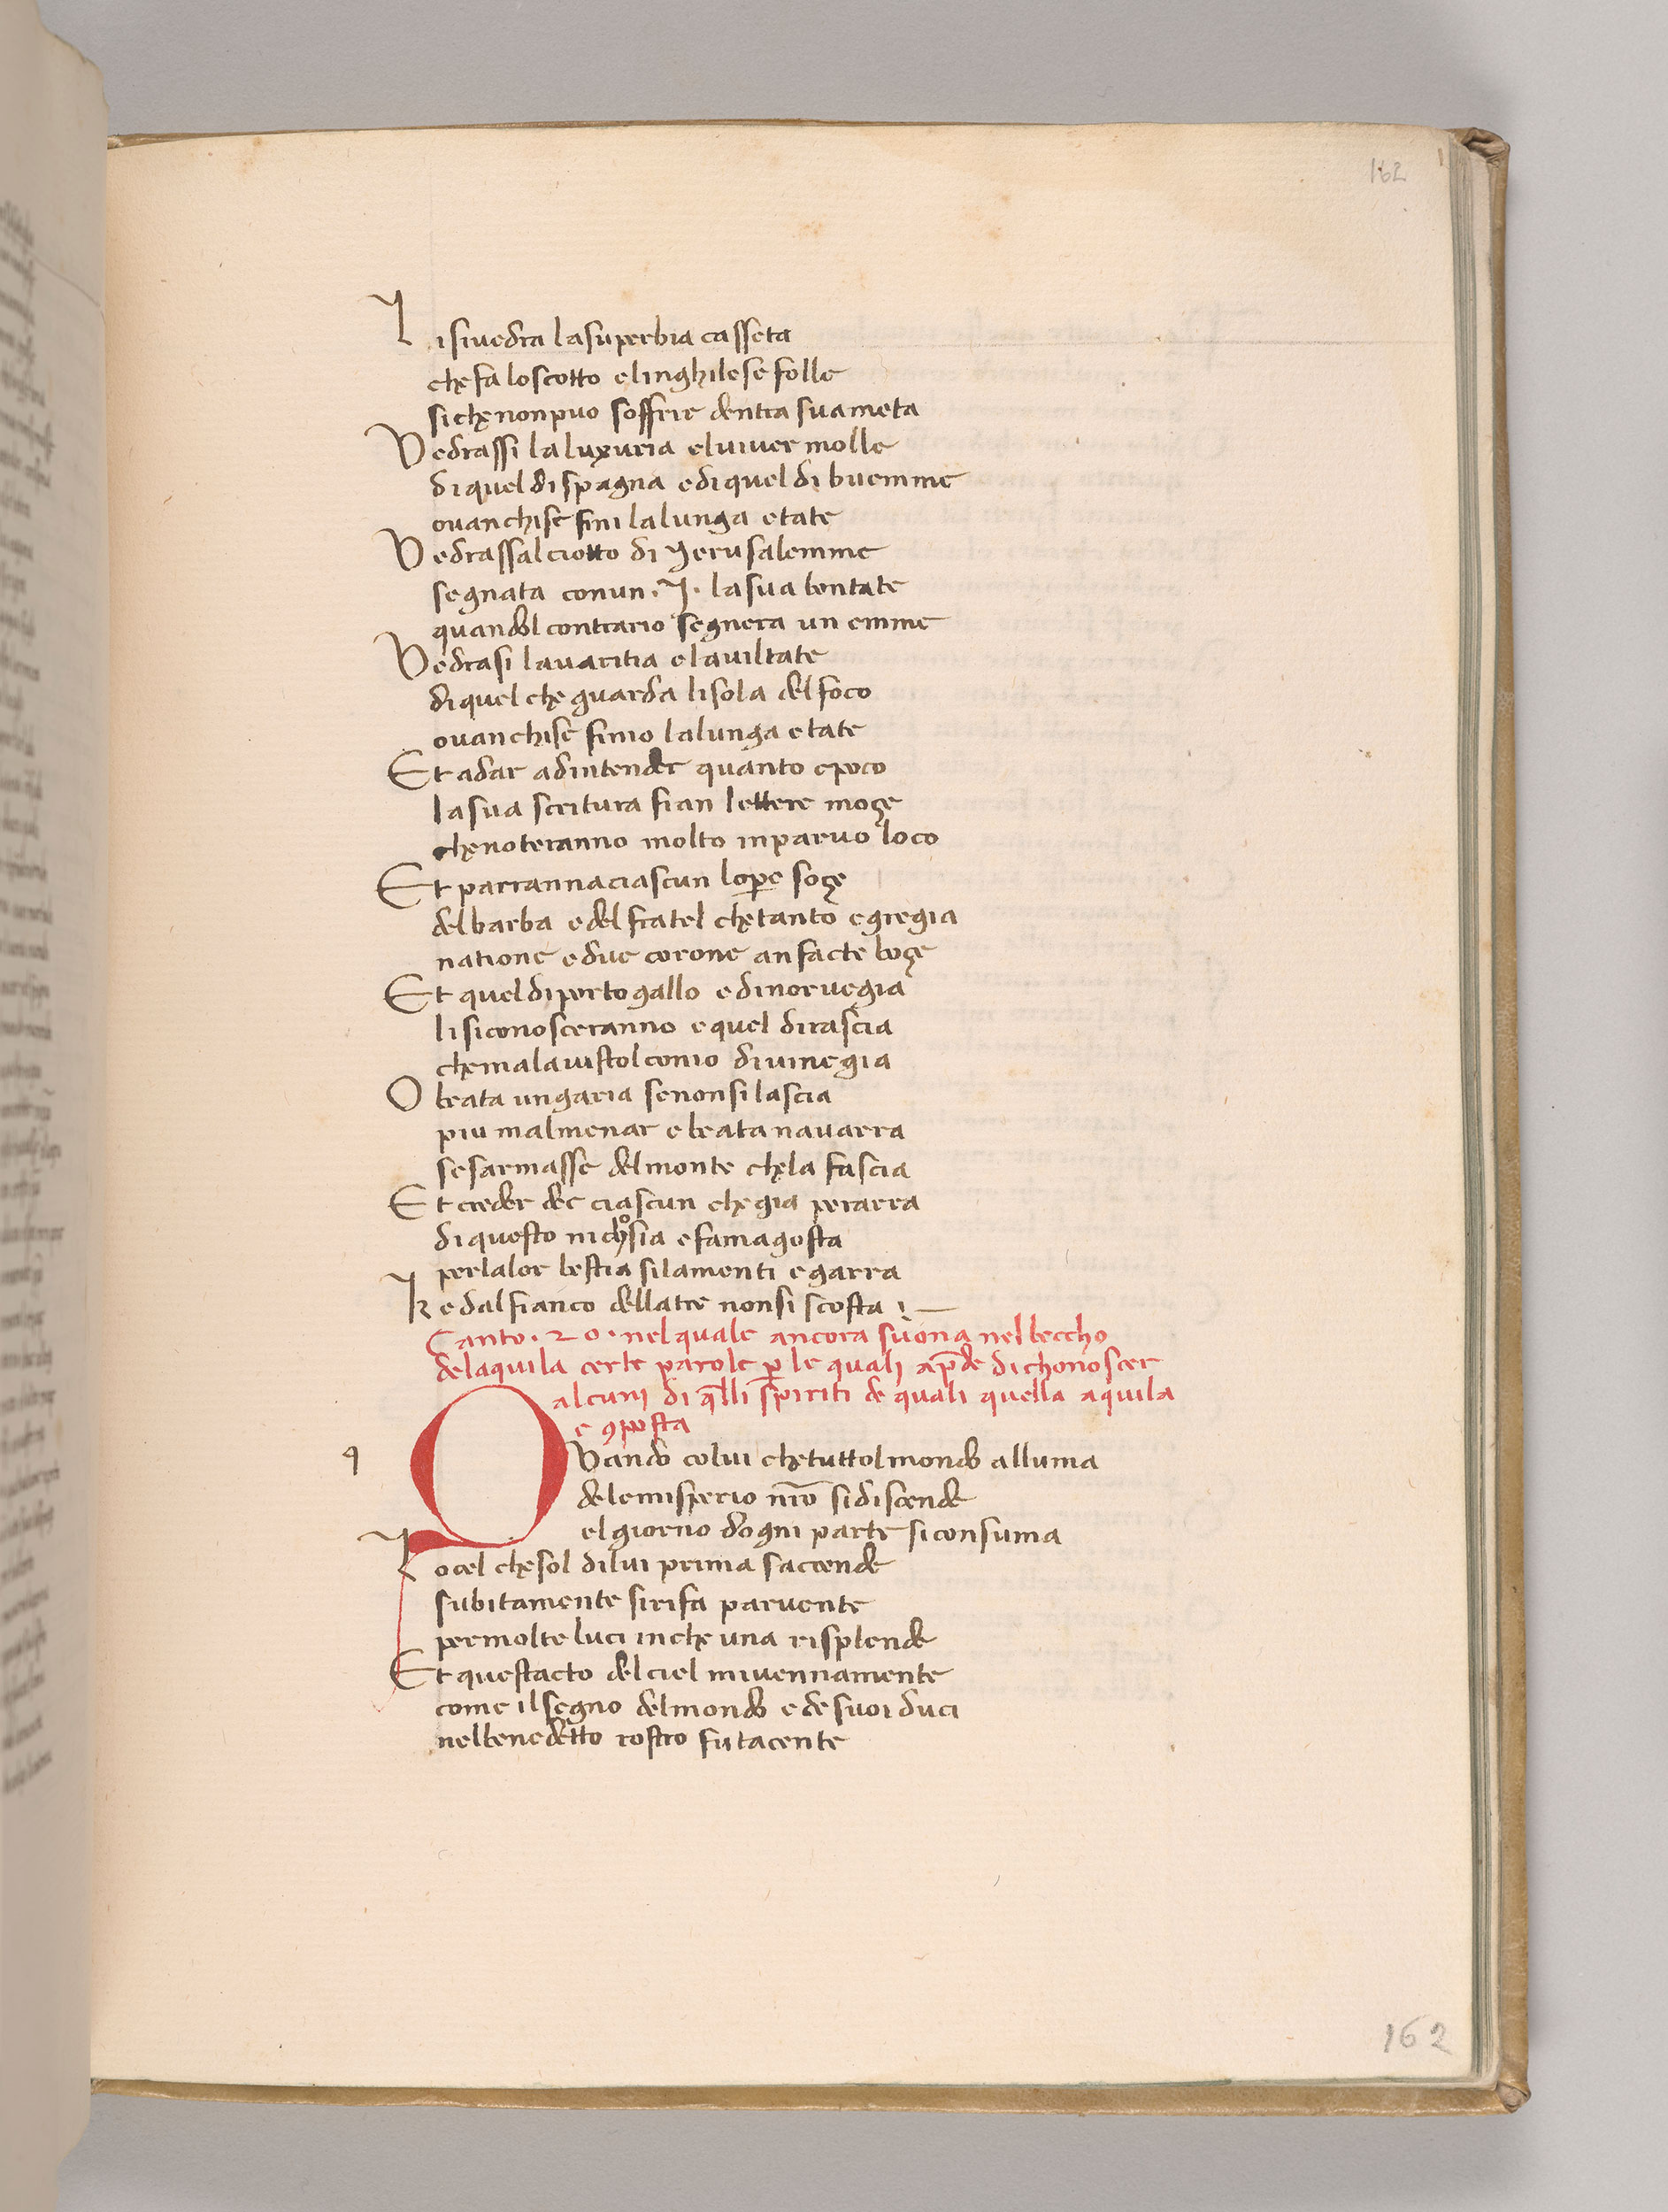 162
Li si vedra la superbia casseta
che fa lo scotto e linghilese folle
si che non puo soffrir dentra sua meta
Vedrassi la luxuria el viver molle
di quel di spagna e di quel di buemme
ovanchise fini la lunga etate
Vedrassal ciotto di Jerusalemme
segnata con un .J. la sua bontate
quandol contrario segnera un emme
Vedrasi lavaritia e la viltate
di quel che guarda lisola del foco
ovanchise finio la lunga etate
Et a dar ad intender quanto e poco
la sua scritura fian lettere moçe
che noteranno molto in parvo loco
Et parranna ciascun lopere soçe
del barba e del fratel che tanto egregia
natione e due corone an facte boçe
Et quel di portogallo e di norvegia
li si conosceranno e quel di rascia
che mala vistol conio di vinegia
O beata ungaria se non si lascia
piu malmenar e beata navarra
se sarmasse del monte che la fascia
Et creder dee ciascun che gia per arra
di questo nichosia e famagosta
per la lor bestia si lamenti e garra
ke dal fianco dellatre non si scosta
Canto .20. nel quale ancora suona nel beccho
de laquila certe parole p̱ le quali ap̄de di chonoscer
alcuni di q̄lli spiriti de quali quella aquila
e ꝯposta
q
Quando colui che tuttol mondo alluma
de lemisperio nr̄o si discende
el giorno dogni parte si consuma
Lo cel che sol di lui prima saccende
subitamente si rifa parvente
per molte luci in che una risplende
Et questacto del ciel mi venna mente
come il segno del mondo e de suoi duci
nel benedetto rostro fu tacente
162